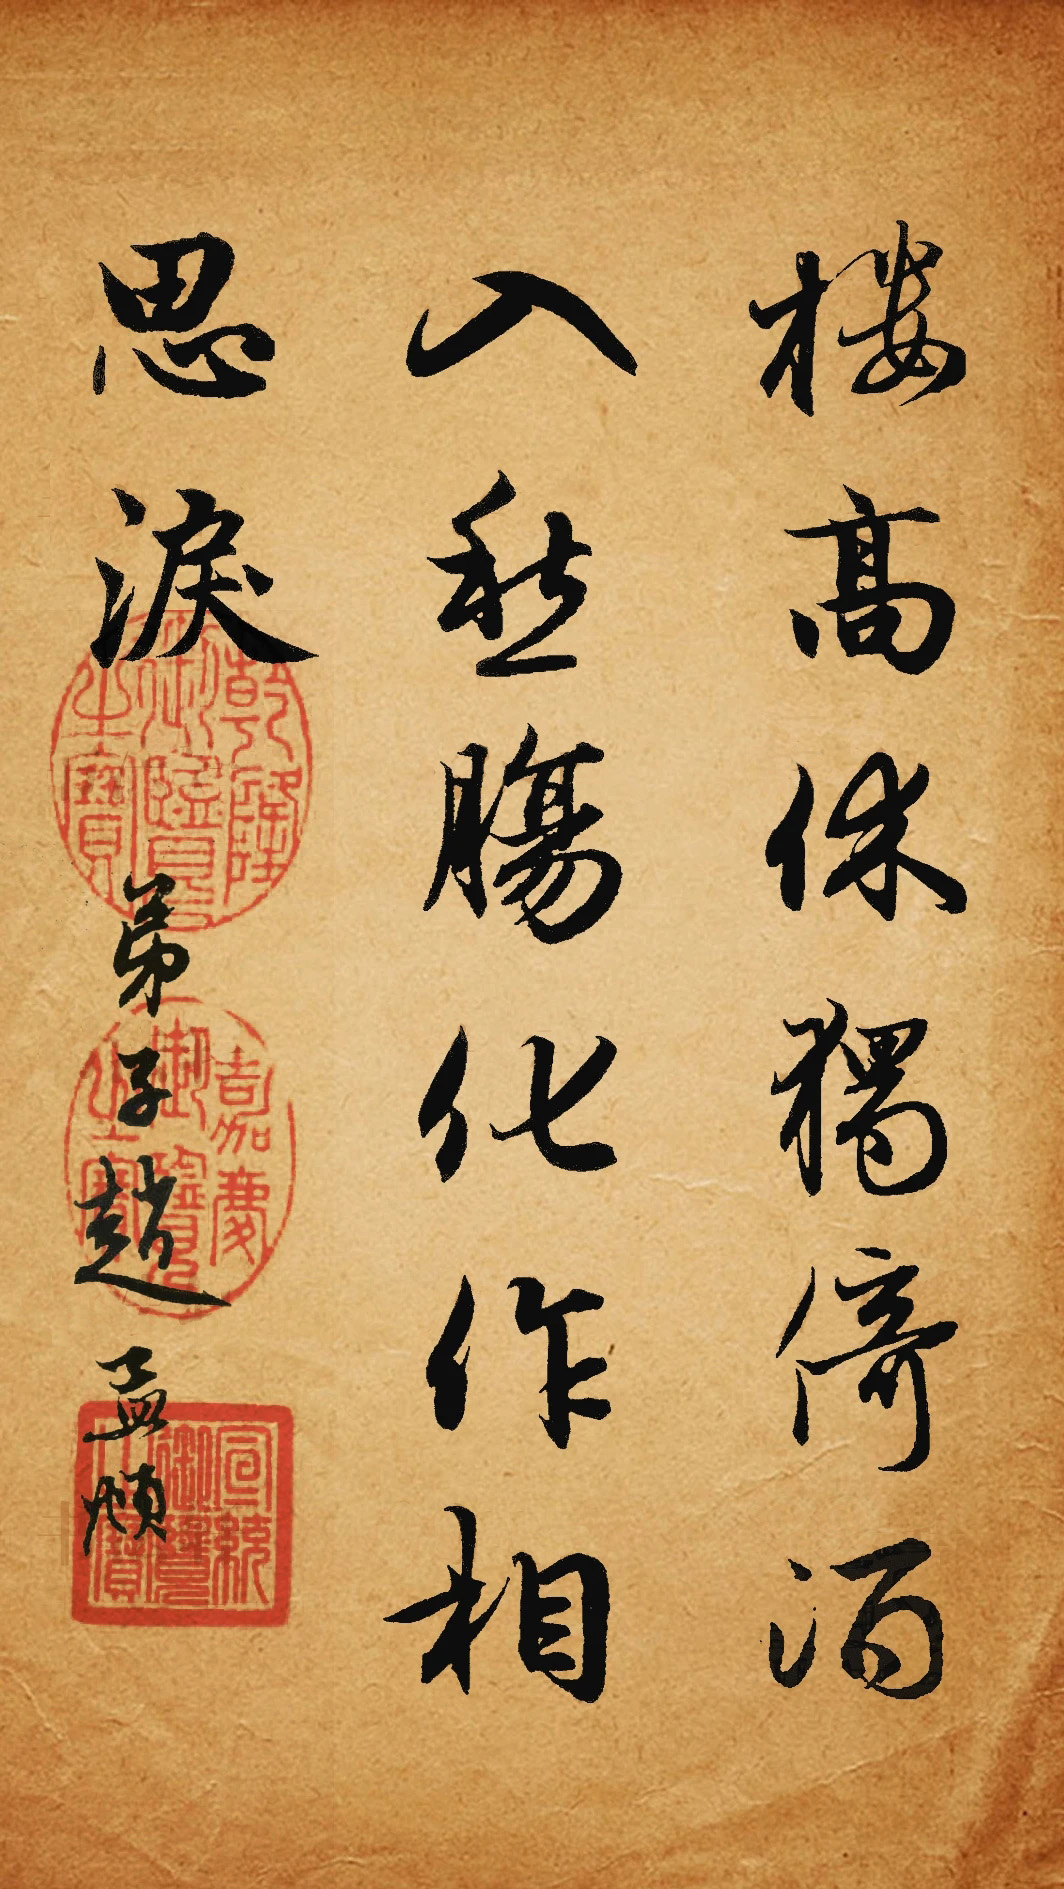 樓高休獨倚酒
入愁腸化作相
思淚
弟子趙孟頫
乾隆御覽之寶
嘉慶御覽之寶
宣統御覽之寶